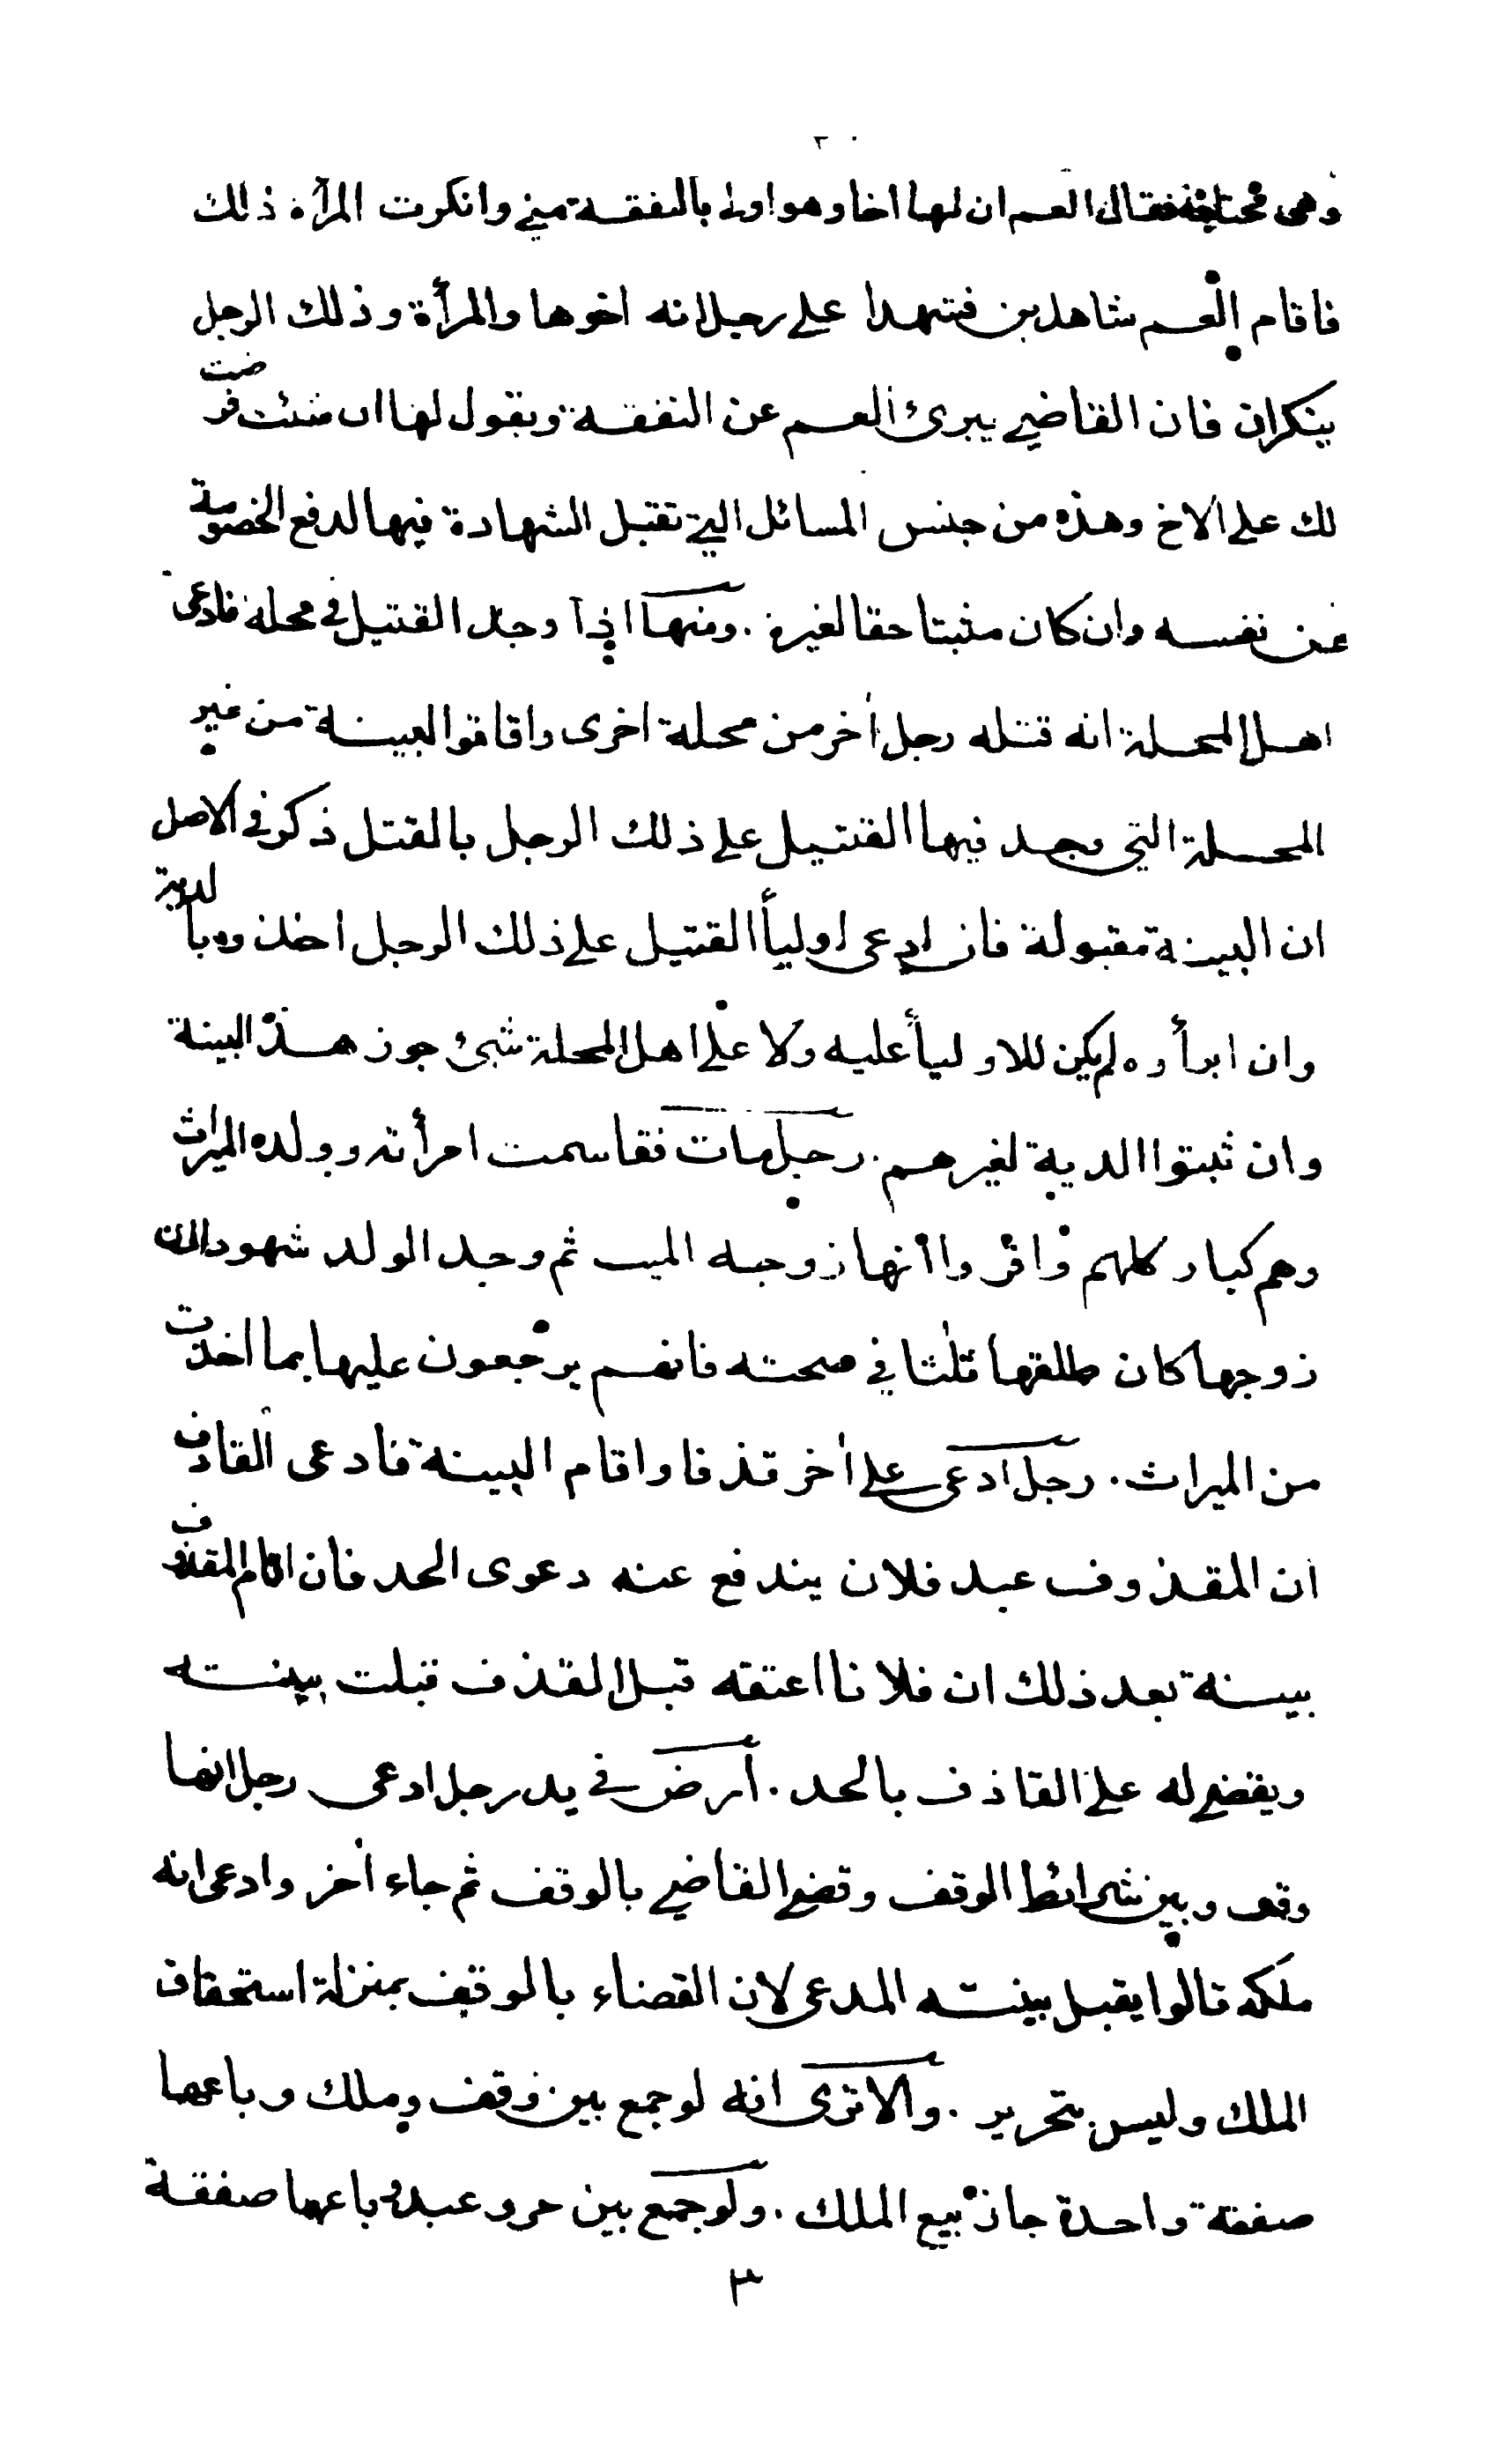 ٢٠
وهى محتاجة فقال العم ان لها اخا وهو اولى بالنفقة منى وانكرت المرأة ذلك
فاقام العم شاهدين فشهدا على رجل انه اخوها والمرأة وذلك الرجل
ينكران فان القاضى يبرئ العم عن النفقة ويقول لها ان شئت فرضت
لك على الاخ وهذه من جنس المسائل التى تقبل الشهادة فيها لدفع الخصومة
عن نفسه وان كان مثبتا حقا لغيره . ومنها اذا وجد القتيل فى محلة فادعى
اهل المحلة انه قتله رجل أخر من محلة اخرى واقاموا البينة من غير
المحلة التى وجد فيها القتيل على ذلك الرجل بالقتل ذكر فى الاصل
ان البينة مقبولة فان ادعى اولياأ القتيل على ذلك الرجل اخذوه بالدية
وان ابرأوه لم يكن للاولياأ عليه ولا على اهل المحلة شئ جوز هذه البينة
وان ثبتوا الدية لغيرهم . رجل مات فقاسمت امرأته وولده الميراث
وهم كبار كلهم واقروا انها زوجه الميت ثم وجد الولد شهودا ان
زوجها كان طلقها ثلثا فى صحته فانهم يرجعون عليها بما اخذت
من الميراث . رجل ادعى على أخر قذفا واقام البينة فادعى القاذف
ان المقذوف عبد فلان يندفع عنه دعوى الحد فان اقام المقذوف
بينة بعد ذلك ان فلانا اعتقه قبل القذف قبلت بينته
ويقضى له على القاذف بالحد . أرض فى يد رجل ادعى رجل انها
وقف وبين شرائط الوقف وقضى القاضى بالوقف ثم جاء أخر وادعى انه
ملكه قالوا يقبل بينته المدعى لان القضاء بالوقف بمنزلة استحقاق
الملك وليس بتحرير . والا ترى انه لو جمع بين وقف وملك وباعها
صفقة واحدة جاز بيع الملك . ولو جمع بين حر وعبد وباعهما صفقة
٣